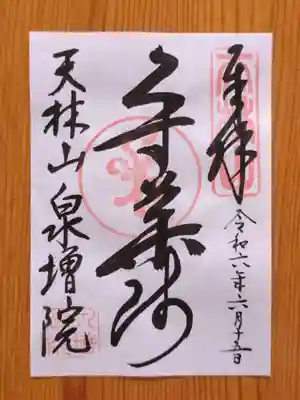 奉拝
令和六年六月十五日
薬師
天林山泉増院